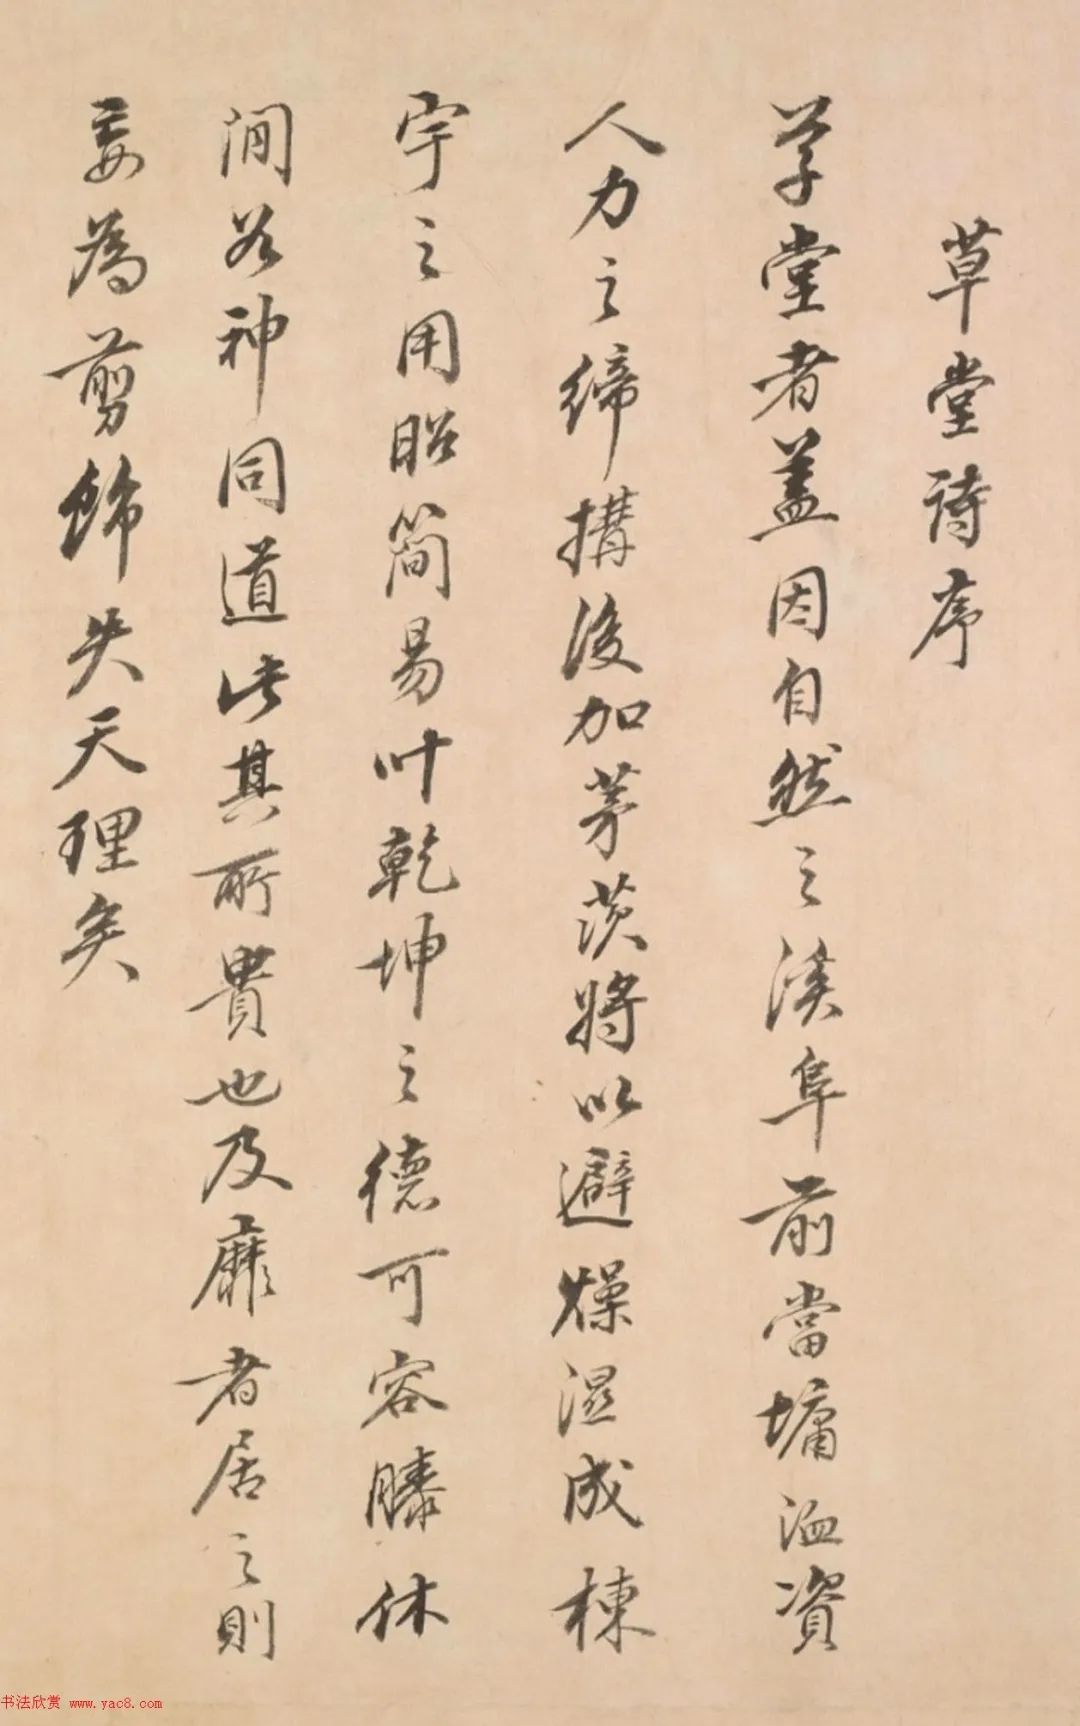 草堂詩序
草堂者蓋因自然之溪阜前當墉洫資
人力之締搆後加茅茨將以避燥濕成棟
宇之用昭簡易叶乾坤之德可容膝休
閒谷神同道此其所貴也及靡者居之則
妄為剪飾失天理矣
书法欣赏 www.yac8.com